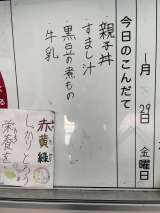 一月 29日 金曜日
今日のこんだて
親子丼
すまし汁
黒豆の煮もの
牛乳
赤黄緑
しっかりとろう
栄養を